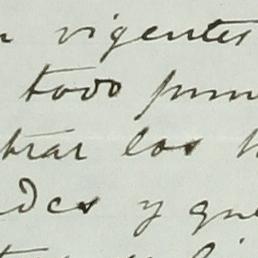 vigentes
todo pun
trar los
des y que